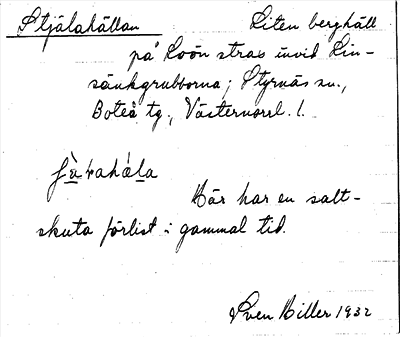 Stjälahällan Liten berghäll
på Loön strax invid Lin-
sänkgrubborna; Styrnäs sn.,
Boteå tg., Västernorrl. l.
Här har en salt-
skuta förlist i gammal tid.
Sven Hiller 1932